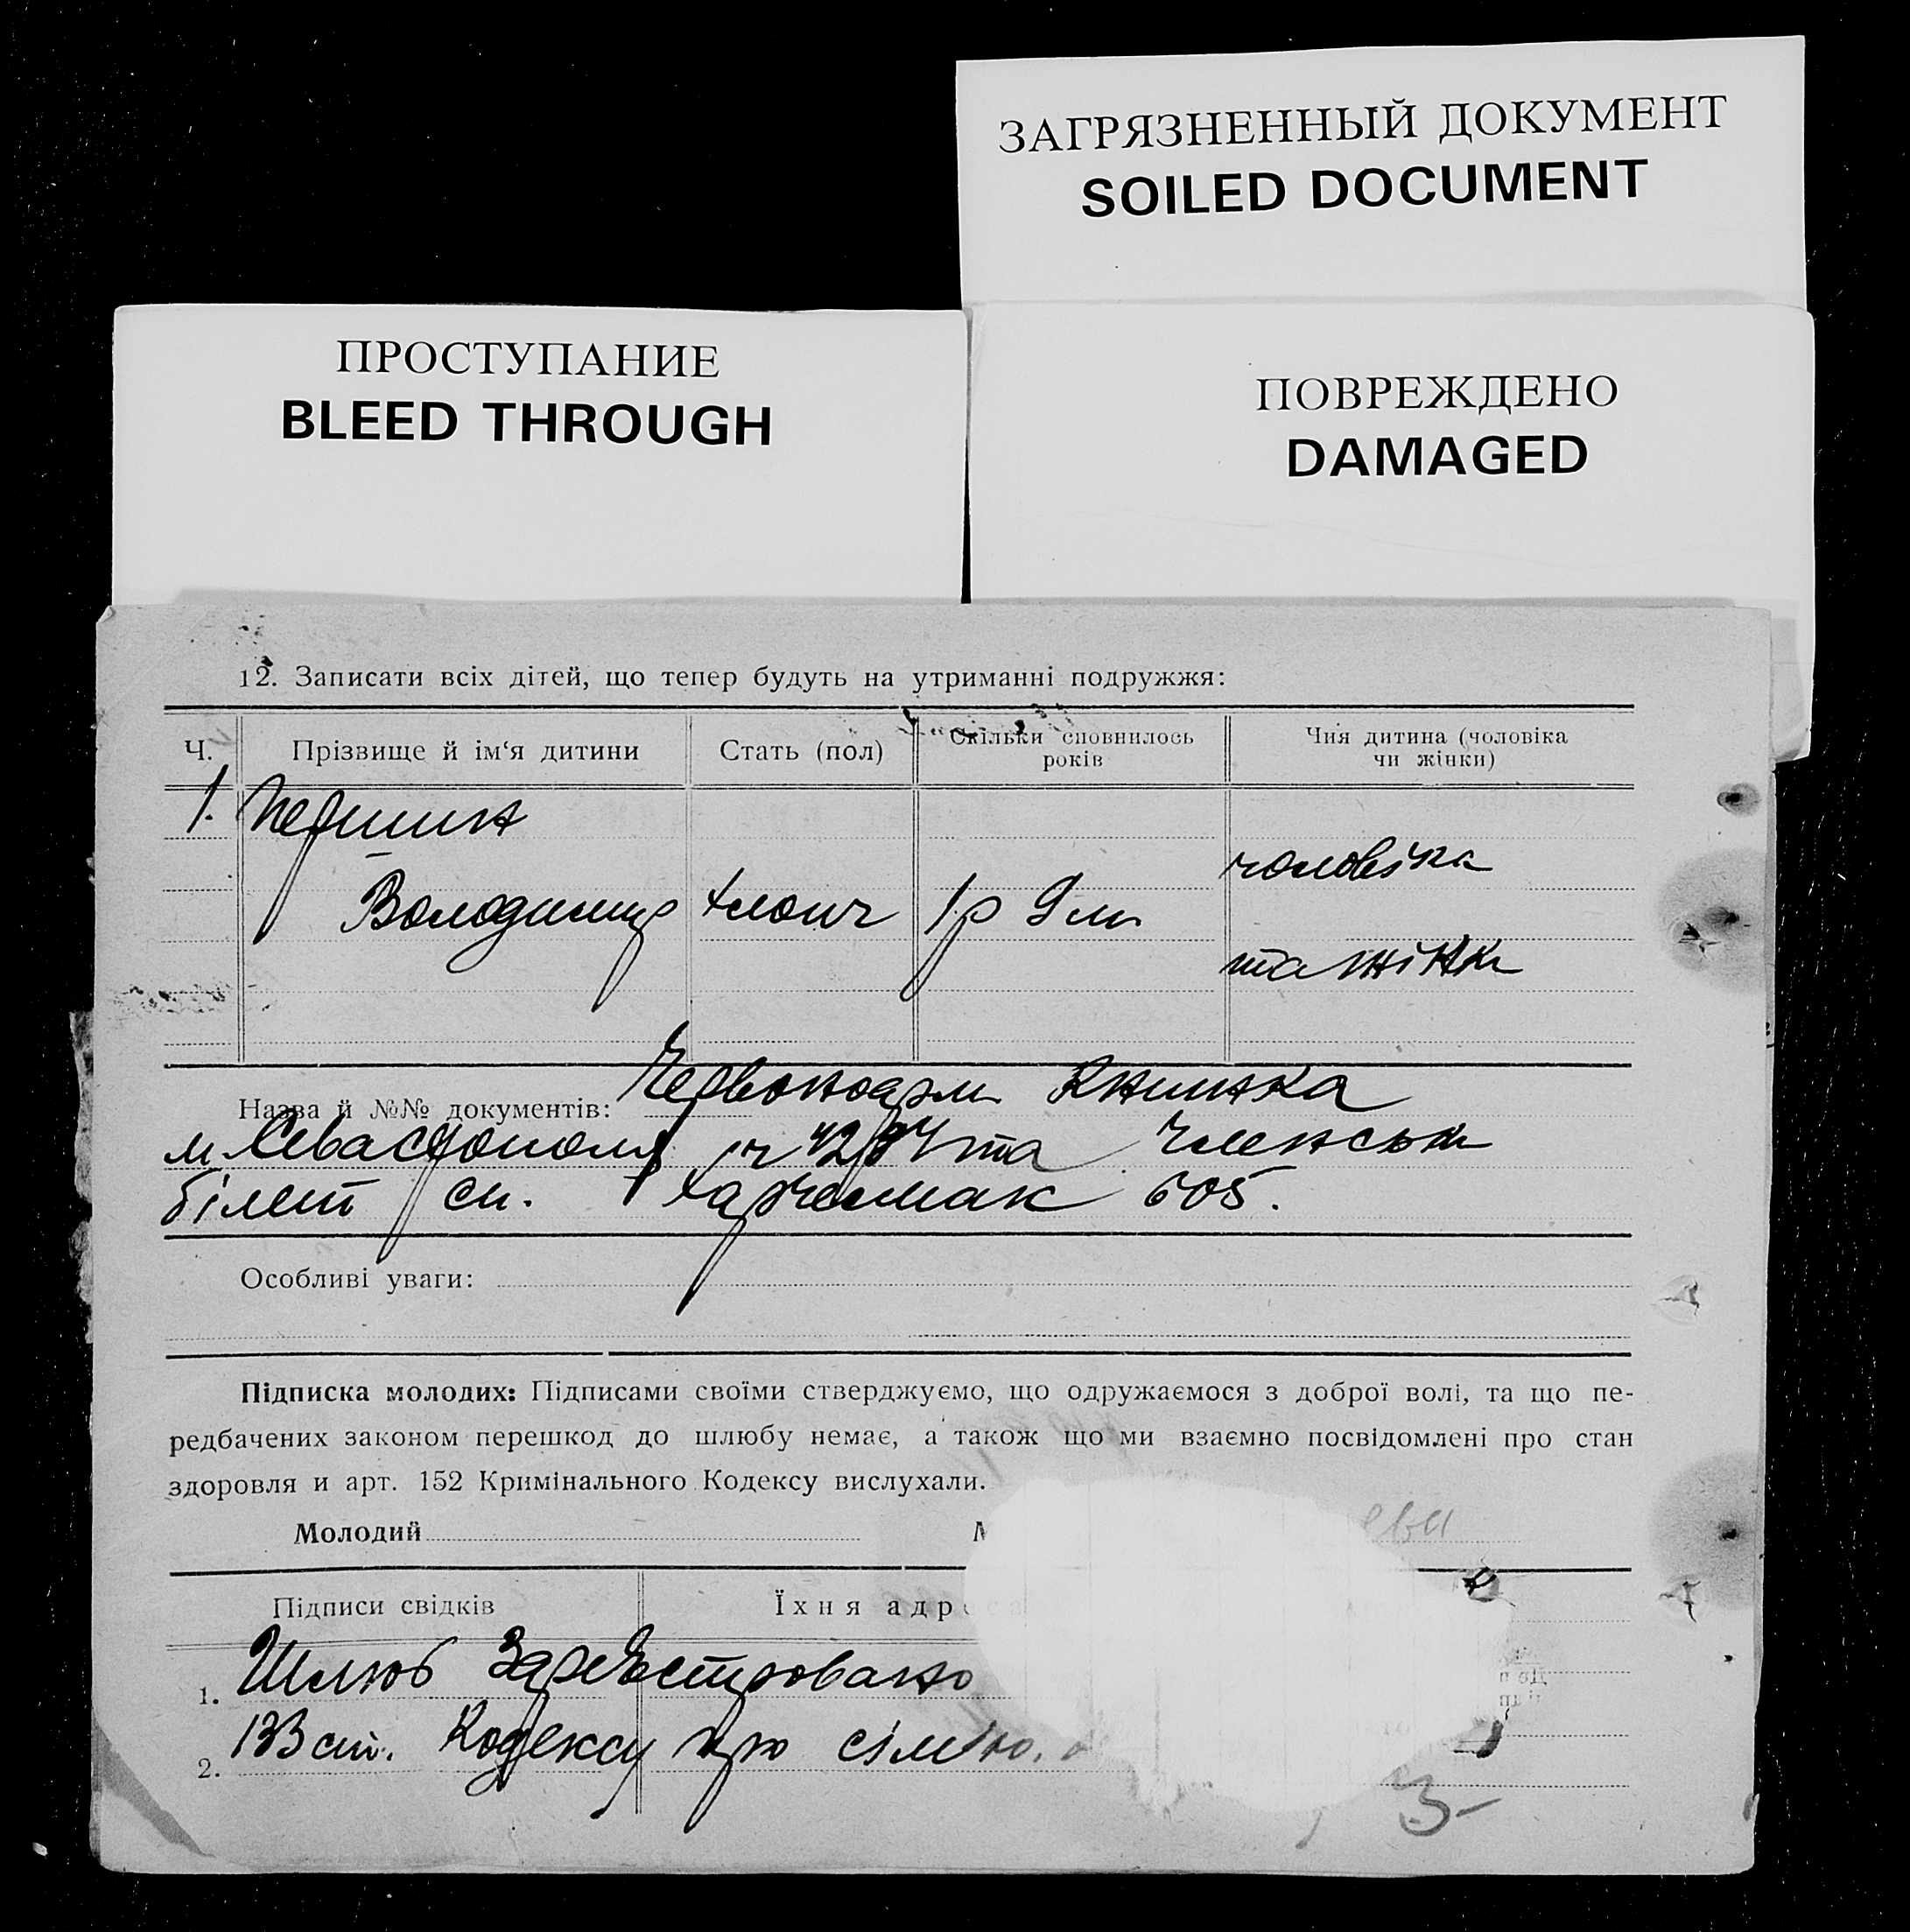 ЗАГРЯЗНЕННЫЙ ДОКУМЕНТ
SOILED DOCUMENT
ПРОСТУПАНИЕ
BLEED THROUGH
ПОВРЕЖДЕНО
DAMAGED
12. Записати всіх дітей, що тепер будуть на утриманні подружжя:
Ч.
Прізвище й ім‘я дитини
Стать (пол)
Скільки сповнилось
років
Чия дитина (чоловіка
чи жінки)
1. Першин
Володимир хлопч 1р 9 м
чоловіка
та жінки
Червоноарм Книжка
Назва й №№ документів:
м Севастополя ч та Членськ
білет сп. Харчосмак 605.
Особливі уваги:
Підписка молодих: Підписами своїми стверджуємо, що одружаємося з доброї волі, та що пе-
редбачених законом перешкод до шлюбу немає, а також що ми взаємно посвідомлені про стан
здоровля и арт. 152 Кримінального Кодексу вислухали.
Молодий
Підписи свідків
Їхня адреса
1. Шлюб Зареєстровано
2. 133 ст. Кодексу про сім'ю.
3-